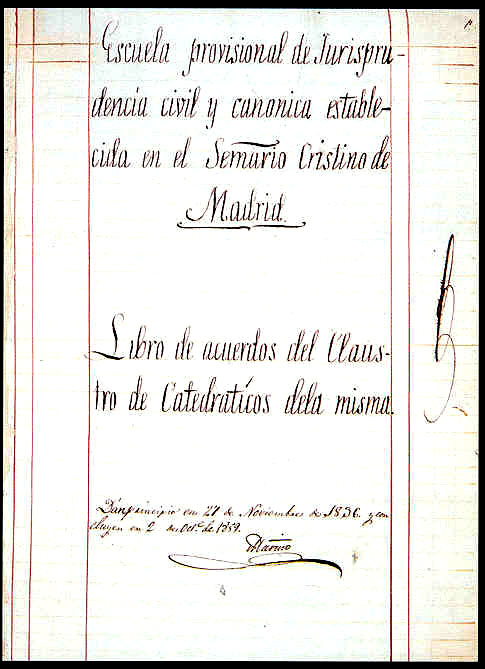 Escuela provisional de Jurispru-
dencia civil y canonica estable-
cida en el Semario Cristino de
Madrid.
Libro de acuerdos del Claus-
tro de Catedraticos dela misma.
Dan principio en 27 de Noviembre de 1836. y con
cluyen en 2 de Oct.e de